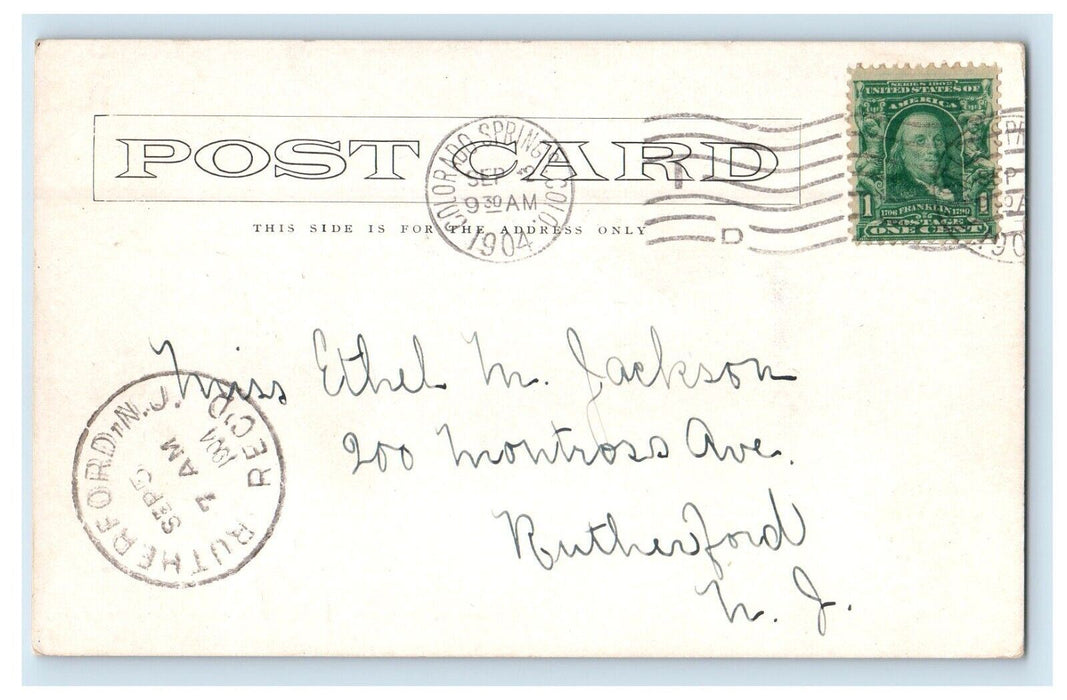 POST CARD
THIS SIDE IS FOR THE ADDRESS ONLY
COLORADO SPRINGS, COLO.
SEP 2
9 30 AM
1904
D
SERIES 1902
UNITED STATES OF
AMERICA
1
1706 FRANKLIN 1790
POSTAGE
ONE CENT
Miss Ethel M. Jackson
200 Montross Ave.
Rutherford
N. J.
RUTHERFORD, N.J. REC'D
SEP 5
7 AM
1904